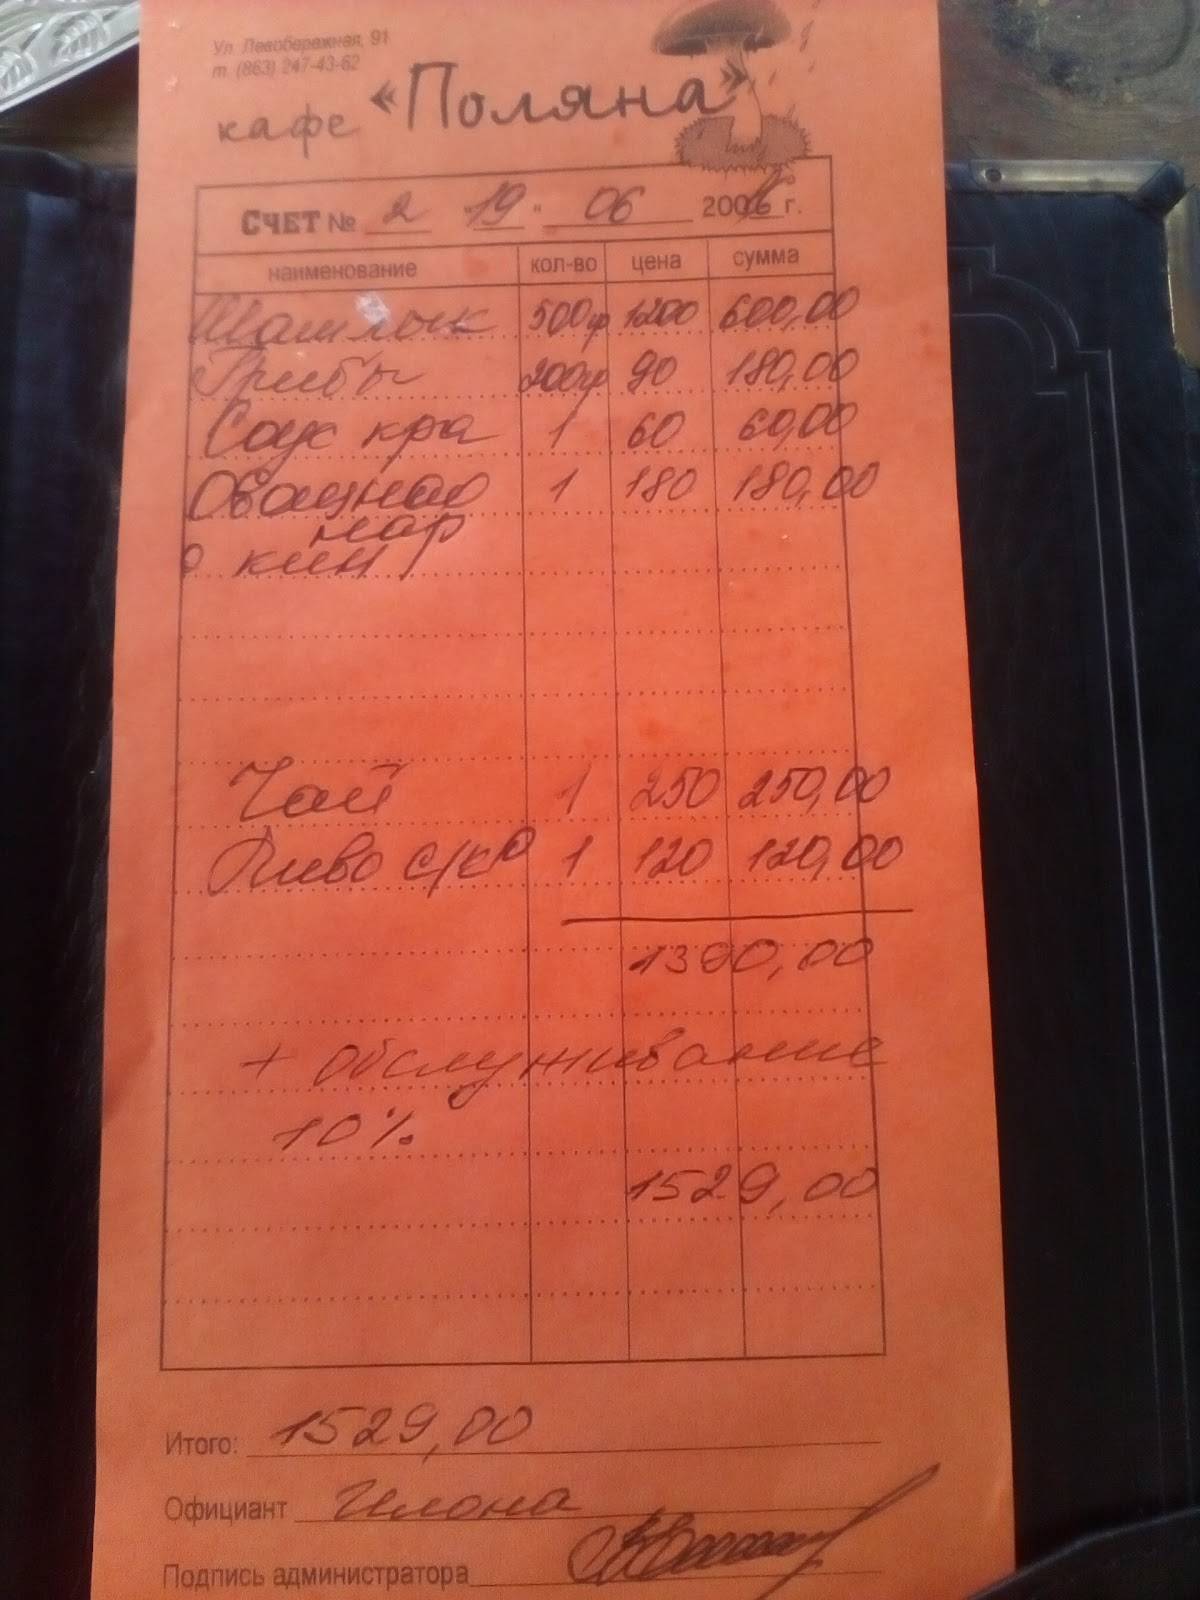 Ул. Левобережная, 91
т. (863) 247-43-62
кафе «Поляна»
СЧЕТ № 2 "19" 06 200 г.
наименование кол-во цена сумма
Шашлык 500гр 1200 600,00
Грибы 200гр 90 180,00
Соус кра 1 60 60,00
Овощная 1 180 180,00
нар
с кин
Чай 1 250 250,00
Пиво с/к 1 120 120,00
1390,00
+ Обслуживание
10%
1529,00
Итого: 1529,00
Официант Илона
Подпись администратора